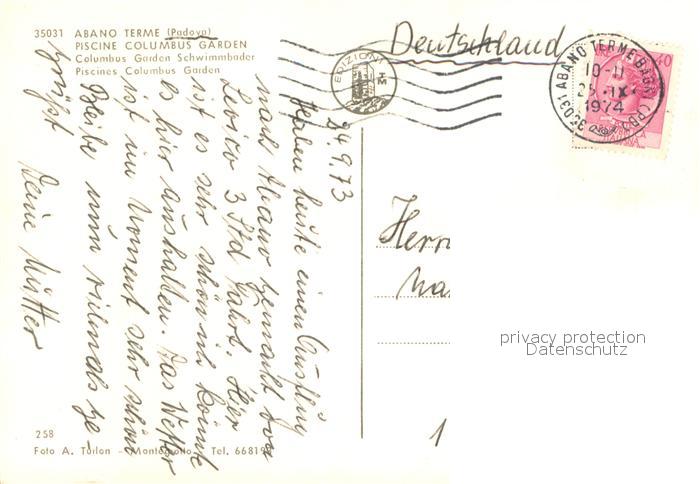 35031 ABANO TERME (Padova)
PISCINE COLUMBUS GARDEN
Columbus Garden Schwimmbader
Piscines Columbus Garden
24.9.73
Haben heute einen Ausflug
nach Abano gemacht von
Levico 3 Std Fahrt. Hier
ist es sehr schön ich könnte
es hir aushalten. Das Wetter
ist im Moment sehr schön
Bleibe nun vielmals ge,
grüßt
Deine Mutter
EDIZIONI
Deutschland
35031 ABANO TERME BAGNI (PD)
10-11
IX
1974
40
Herrn
1
privacy protection
Datenschutz
258
Foto A. Turlon - Montegrotto - Tel. 66819